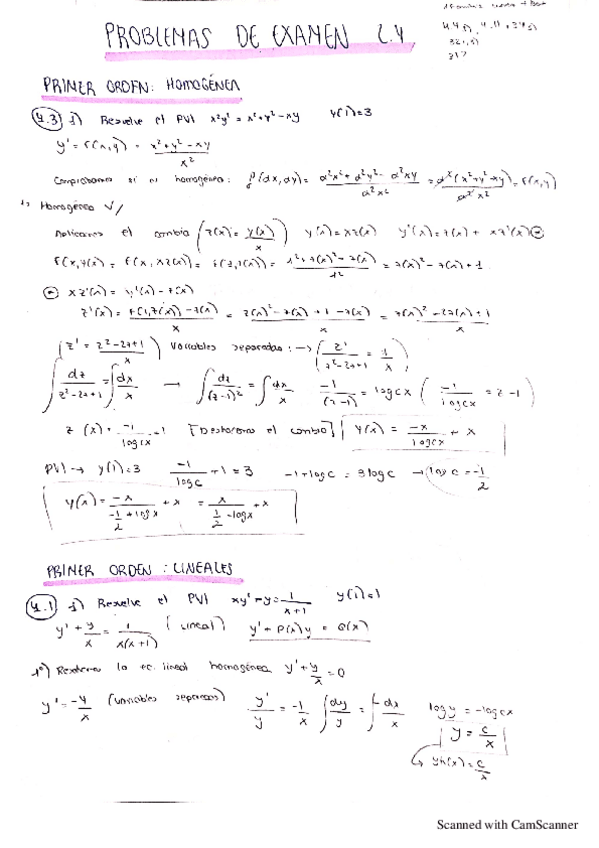 PROBLEMAS DE EXAMEN
PRIMER ORDEN: HOMOGÉNEA
4.3) 1) Resuelve el PVI x²y' = x²+y²-xy y(1)=3
y' = f(x,y) = x²+y²-xy / x²
Comprobamos si es homogénea: f(αx,αy) = α²x²+α²y²-α²xy / α²x² = α²(x²+y²-xy) / α²x² = f(x,y)
Homogénea
Aplicamos el cambio (z(x) = y(x)/x) y(x)=xz(x) y'(x) = z(x) + xz'(x)
f(x,y(x)) = f(x,xz(x)) = f(1,z(x)) = 1²+z(x)²-z(x) / 1² = z(x)²-z(x)+1
xz'(x) = y'(x)-z(x)
z'(x) = f(1,z(x))-z(x) / x = z(x)²-z(x)+1-z(x) / x = z(x)²-2z(x)+1 / x
(z' = z²-2z+1 / x) Variables separadas: → (z' / z²-2z+1 = 1/x)
∫ dz / z²-2z+1 = ∫ dx/x → ∫ dz / (z-1)² = ∫ dx/x -1/(z-1) = log cx (-1/log cx = z-1)
z(x) = -1/log cx +1 [Deshacemos el cambio] y(x) = -x/log cx + x
PVI → y(1)=3 -1/log c +1 = 3 -1+log c = 3log c → log c = -1/2
y(x) = -x / -1/2 + log x + x = x / 1/2 - log x + x
PRIMER ORDEN: LINEALES
4.1) 1) Resuelve el PVI xy'+y = 1/x+1 y(1)=1
y' + y/x = 1/x(x+1) (Lineal) y' + P(x)y = Q(x)
1º) Resolvemos la ec. lineal homogénea y' + y/x = 0
y' = -y/x (variables separadas) y'/y = -1/x ∫ dy/y = ∫ -dx/x log y = -log cx
y = c/x
yh(x) = c/x
Scanned with CamScanner